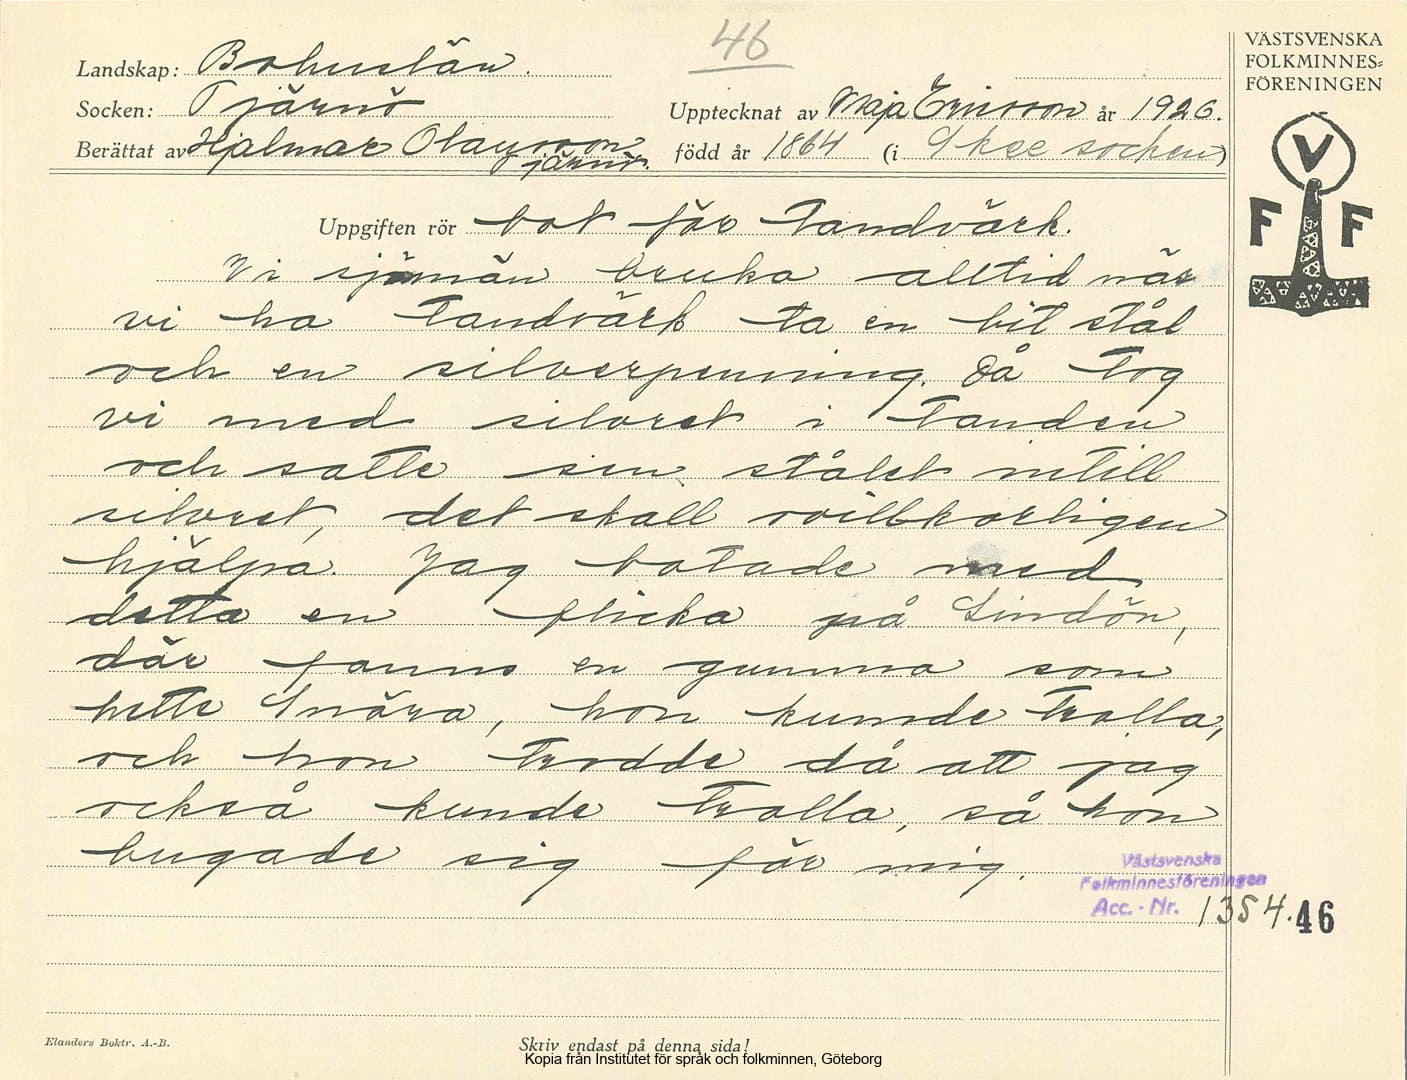 46
VÄSTSVENSKA
FOLKMINNES-
FÖRENINGEN
V
F F
Landskap: Bohuslän.
Socken: Tjärnö
Upptecknat av Maja Ericsson år 1926.
Berättat av Hjalmar Olausson
Tjärnö.
född år 1864 (i Skee socken)
Uppgiften rör bot för tandvärk.
Vi sjömän bruka alltid när
vi ha tandvärk ta en bit stål
och en silverpenning. Då tog
vi med silvret i tanden
och satte sen stålet intill
silvret, det skall ovillkorligen
hjälpa. Jag botade med
detta en flicka på Lindön,
där fanns en gumma som
hette Snära, hon kunde trolla,
och hon trodde då att jag
också kunde trolla, så hon
bugade sig för mig.
Västsvenska
Folkminnesföreningen
Acc.-Nr. 1354.46
Elanders Boktr. A.-B.
Skriv endast på denna sida!
Kopia från Institutet för språk och folkminnen, Göteborg